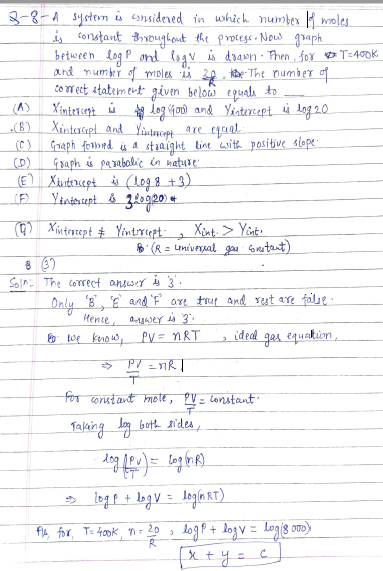 Q-8- A system is considered in which number of moles
is constant throughout the process. Now graph
between log P and log V is drawn. Then, for T=400K
and number of moles is 20/R The number of
correct statement given below equals to __
(A) Xintercept is log(400) and Yintercept is log 20
(B) Xintercept and Yintercept are equal.
(C) Graph formed is a straight line with positive slope.
(D) Graph is parabolic in nature.
(E) Xintercept is (log 8 + 3)
(F) Yintercept is 3log20
(G) Xintercept ≠ Yintercept, Xint. > Yint.
(R = universal gas constant)
(3)
Soln:- The correct answer is '3'.
Only 'B', 'E' and 'F' are true and rest are false.
Hence, answer is '3'.
We know, PV = nRT , ideal gas equation,
⇒ PV/T = nR
For constant mole, PV/T = constant.
Taking log both sides,
log(PV/T) = log(nR)
⇒ log P + log V = log(nRT)
As, for, T=400K, n = 20/R , log P + log V = log(8000)
x + y = c